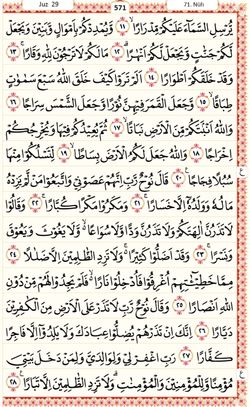 Juz 29
571
71. Nûh
يُرْسِلِ السَّمَآءَ عَلَيْكُمْ مِدْرَارًا ﴿١١﴾ وَيُمْدِدْكُمْ بِاَمْوَالٍ وَبَنٖينَ وَيَجْعَلْ
لَكُمْ جَنَّاتٍ وَيَجْعَلْ لَكُمْ اَنْهَارًا ﴿١٢﴾ مَا لَكُمْ لَا تَرْجُونَ لِلّٰهِ وَقَارًا ﴿١٣﴾
وَقَدْ خَلَقَكُمْ اَطْوَارًا ﴿١٤﴾ اَلَمْ تَرَوْا كَيْفَ خَلَقَ اللّٰهُ سَبْعَ سَمٰوَاتٍ
طِبَاقًا ﴿١٥﴾ وَجَعَلَ الْقَمَرَ فٖيهِنَّ نُورًا وَجَعَلَ الشَّمْسَ سِرَاجًا ﴿١٦﴾
وَاللّٰهُ اَنْبَتَكُمْ مِنَ الْاَرْضِ نَبَاتًا ﴿١٧﴾ ثُمَّ يُعٖيدُكُمْ فٖيهَا وَيُخْرِجُكُمْ
اِخْرَاجًا ﴿١٨﴾ وَاللّٰهُ جَعَلَ لَكُمُ الْاَرْضَ بِسَاطًا ﴿١٩﴾ لِتَسْلُكُوا مِنْهَا
سُبُلًا فِجَاجًا ﴿٢٠﴾ قَالَ نُوحٌ رَبِّ اِنَّهُمْ عَصَوْنٖي وَاتَّبَعُوا مَنْ لَمْ يَزِدْهُ
مَالُهُ وَوَلَدُهُٓ اِلَّا خَسَارًا ﴿٢١﴾ وَمَكَرُوا مَكْرًا كُبَّارًا ﴿٢٢﴾ وَقَالُوا
لَا تَذَرُنَّ اٰلِهَتَكُمْ وَلَا تَذَرُنَّ وَدًّا وَلَا سُوَاعًا وَلَا يَغُوثَ وَيَعُوقَ
وَنَسْرًا ﴿٢٣﴾ وَقَدْ اَضَلُّوا كَثٖيرًا وَلَا تَزِدِ الظَّالِمٖينَ اِلَّا ضَلَالًا ﴿٢٤﴾
مِمَّا خَطٖٓيـَٔاتِهِمْ اُغْرِقُوا فَاُدْخِلُوا نَارًا فَلَمْ يَجِدُوا لَهُمْ مِنْ دُونِ
اللّٰهِ اَنْصَارًا ﴿٢٥﴾ وَقَالَ نُوحٌ رَبِّ لَا تَذَرْ عَلَى الْاَرْضِ مِنَ الْكَافِرٖينَ
دَيَّارًا ﴿٢٦﴾ اِنَّكَ اِنْ تَذَرْهُمْ يُضِلُّوا عِبَادَكَ وَلَا يَلِدُٓوا اِلَّا فَاجِرًا
كَفَّارًا ﴿٢٧﴾ رَبِّ اغْفِرْ لٖي وَلِوَالِدَيَّ وَلِمَنْ دَخَلَ بَيْتِيَ
مُؤْمِنًا وَلِلْمُؤْمِنٖينَ وَالْمُؤْمِنَاتِ وَلَا تَزِدِ الظَّالِمٖينَ اِلَّا تَبَارًا ﴿٢٨﴾